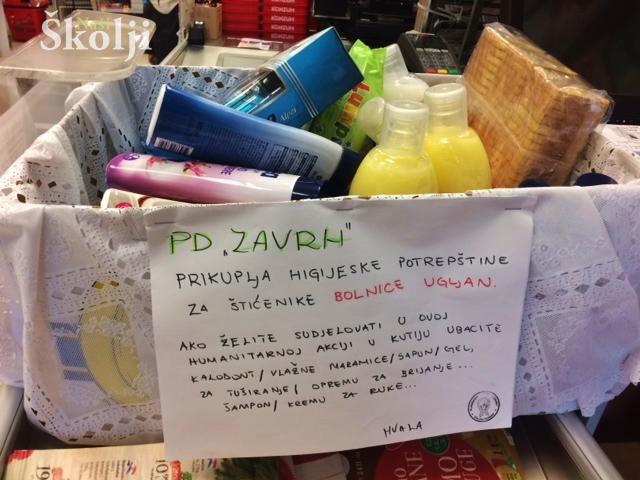 Naši
Školji
KONZUM
KONZUM
KONZUM
Alpex
PD „ZAVRH"
PRIKUPLJA HIGIJESKE POTREPŠTINE
ZA ŠTIĆENIKE BOLNICE UGLJAN.
AKO ŽELITE SUDJELOVATI U OVOJ
HUMANITARNOJ AKCIJI U KUTIJU UBACITE
KALODONT/ VLAŽNE MARAMICE/SAPUN/GEL,
ZA TUŠIRANJE/ OPREMU ZA BRIJANJE...
ŠAMPON/ KREMU ZA RUKE...
HVALA